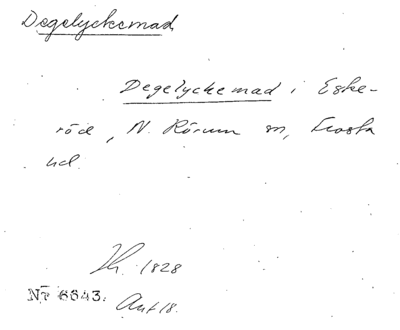 Degelyckemad
Degelyckemad i Eske-
röd, N. Rörum sn, Frosta
hd.
1828
Nr 6643. Ant 18.